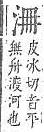 淜
皮冰切音平
無舟渡河也